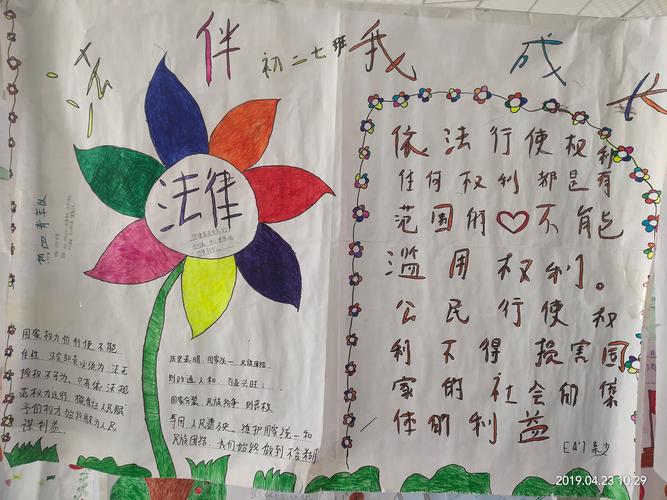 法
伴
初二七班
我
成
长
法律
依法行使权利
任何权利都是有
范围的不能
滥用权利。
公民行使权
利不得损害国
家的社会的集
体的利益
国家权力的行使不能
任性,法定职责必须为,法无
授权不可为。只有依法规
范权力运行,
手的权才始终为人民
谋利益。
历史表明:国家统一、民族团结
则政通人和、百业兴旺;
国家分裂、民族纷争,则丧权
辱国、人民遭殃。维护国家统一和
民族团结,我们始终做到不含糊
2019.04.23 10:29